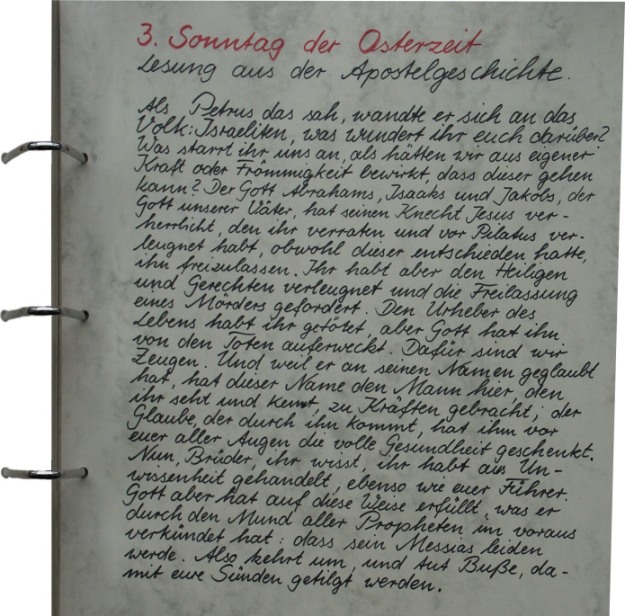 3. Sonntag der Osterzeit
Lesung aus der Apostelgeschichte.
Als Petrus das sah, wandte er sich an das
Volk: Israeliten, was wundert ihr euch darüber?
Was starrt ihr uns an, als hätten wir aus eigener
Kraft oder Frömmigkeit bewirkt, dass dieser gehen
kann? Der Gott Abrahams, Isaaks und Jakobs, der
Gott unserer Väter, hat seinen Knecht Jesus ver-
herrlicht, den ihr verraten und vor Pilatus ver-
leugnet habt, obwohl dieser entschieden hatte,
ihn freizulassen. Ihr habt aber den Heiligen
und Gerechten verleugnet und die Freilassung
eines Mörders gefordert. Den Urheber des
Lebens habt ihr getötet, aber Gott hat ihn
von den Toten auferweckt. Dafür sind wir
Zeugen. Und weil er an seinen Namen geglaubt
hat, hat dieser Name den Mann hier, den
ihr seht und kennt, zu Kräften gebracht; der
Glaube, der durch ihn kommt, hat ihm vor
euer aller Augen die volle Gesundheit geschenkt.
Nun, Brüder, ihr wisst, ihr habt aus Un-
wissenheit gehandelt, ebenso wie euer Führer.
Gott aber hat auf diese Weise erfüllt, was er
durch den Mund aller Propheten im voraus
verkündet hat: dass sein Messias leiden
werde. Also kehrt um, und tut Buße, da-
mit eure Sünden getilgt werden.